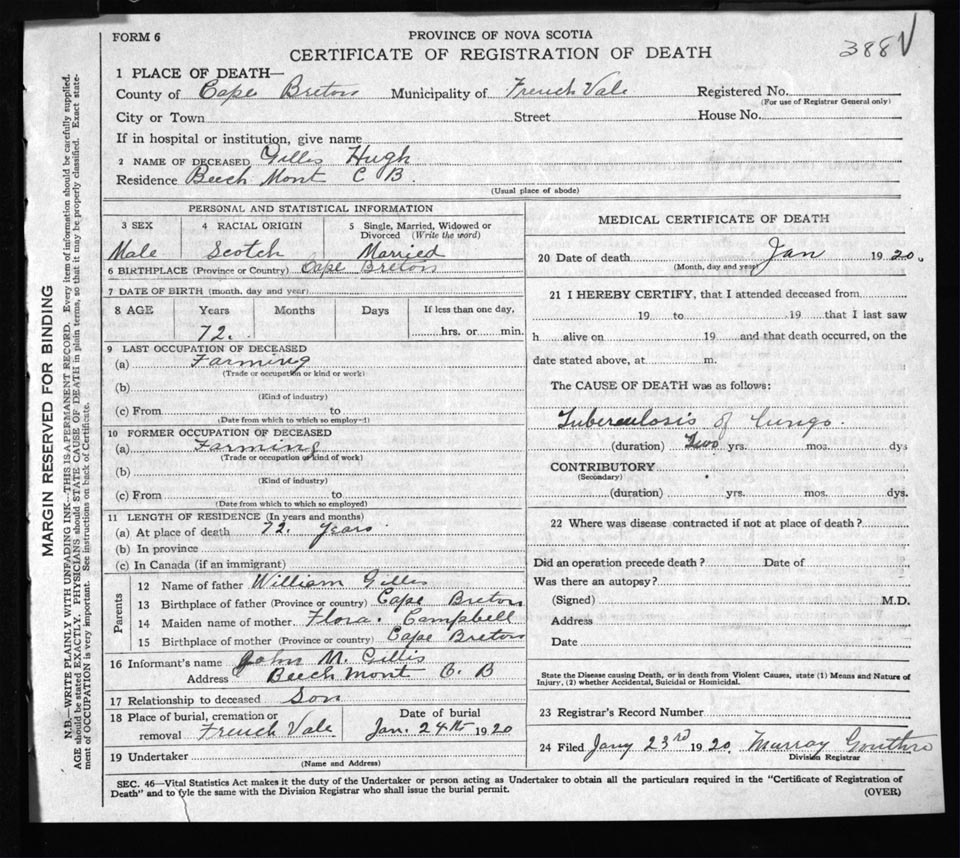 FORM 6
PROVINCE OF NOVA SCOTIA
CERTIFICATE OF REGISTRATION OF DEATH
388
MARGIN RESERVED FOR BINDING
N.B.—WRITE PLAINLY WITH UNFADING INK—THIS IS A PERMANENT RECORD. Every item of information should be carefully supplied.
AGE should be stated EXACTLY. PHYSICIANS should STATE CAUSE OF DEATH in plain terms, so that it may be properly classified. Exact state-
ment of OCCUPATION is very important. See instructions on back of Certificate.
1 PLACE OF DEATH—
County of Cape Breton Municipality of French Vale Registered No.
(For use of Registrar General only)
City or Town Street House No.
If in hospital or institution, give name
2 NAME OF DECEASED Gillis Hugh
Residence Beech Mont C B.
(Usual place of abode)
PERSONAL AND STATISTICAL INFORMATION
3 SEX 4 RACIAL ORIGIN 5 Single, Married, Widowed or
Divorced (Write the word)
Male Scotch Married
6 BIRTHPLACE (Province or Country) Cape Breton
7 DATE OF BIRTH (month, day and year)
8 AGE Years Months Days If less than one day,
72. hrs. or min.
9 LAST OCCUPATION OF DECEASED
(a) Farming
(Trade or occupation or kind or work)
(b)
(Kind of industry)
(c) From to
(Date from which to which so employed)
10 FORMER OCCUPATION OF DECEASED
(a) Farming
(Trade or occupation or kind of work)
(b)
(Kind of industry)
(c) From to
(Date from which to which so employed)
11 LENGTH OF RESIDENCE (In years and months)
(a) At place of death 72. Years
(b) In province
(c) In Canada (if an immigrant)
Parents
12 Name of father William Gillis
13 Birthplace of father (Province or country) Cape Breton
14 Maiden name of mother. Flora. Campbell
15 Birthplace of mother (Province or country) Cape Breton
16 Informant's name John M. Gillis
Address Beech Mont C. B
17 Relationship to deceased Son
18 Place of burial, cremation or Date of burial
removal French Vale Jan. 24th 1920
19 Undertaker
(Name and Address)
MEDICAL CERTIFICATE OF DEATH
20 Date of death Jan 1920.
(Month, day and year)
21 I HEREBY CERTIFY, that I attended deceased from
19 to 19 that I last saw
h alive on 19 and that death occurred, on the
date stated above, at m.
The CAUSE OF DEATH was as follows:
Tuberculosis of lungs.
(duration) Two yrs. mos. dys
CONTRIBUTORY
(Secondary)
(duration) yrs. mos. dys.
22 Where was disease contracted if not at place of death?
Did an operation precede death? Date of
Was there an autopsy?
(Signed) M.D.
Address
Date
State the Disease causing Death, or in death from Violent Causes, state (1) Means and Nature of
Injury, (2) whether Accidental, Suicidal or Homicidal.
23 Registrar's Record Number
24 Filed Jany 23rd 1920. Murray Gouthro
Division Registrar
SEC. 46—Vital Statistics Act makes it the duty of the Undertaker or person acting as Undertaker to obtain all the particulars required in the "Certificate of Registration of
Death" and to fyle the same with the Division Registrar who shall issue the burial permit.
(OVER)